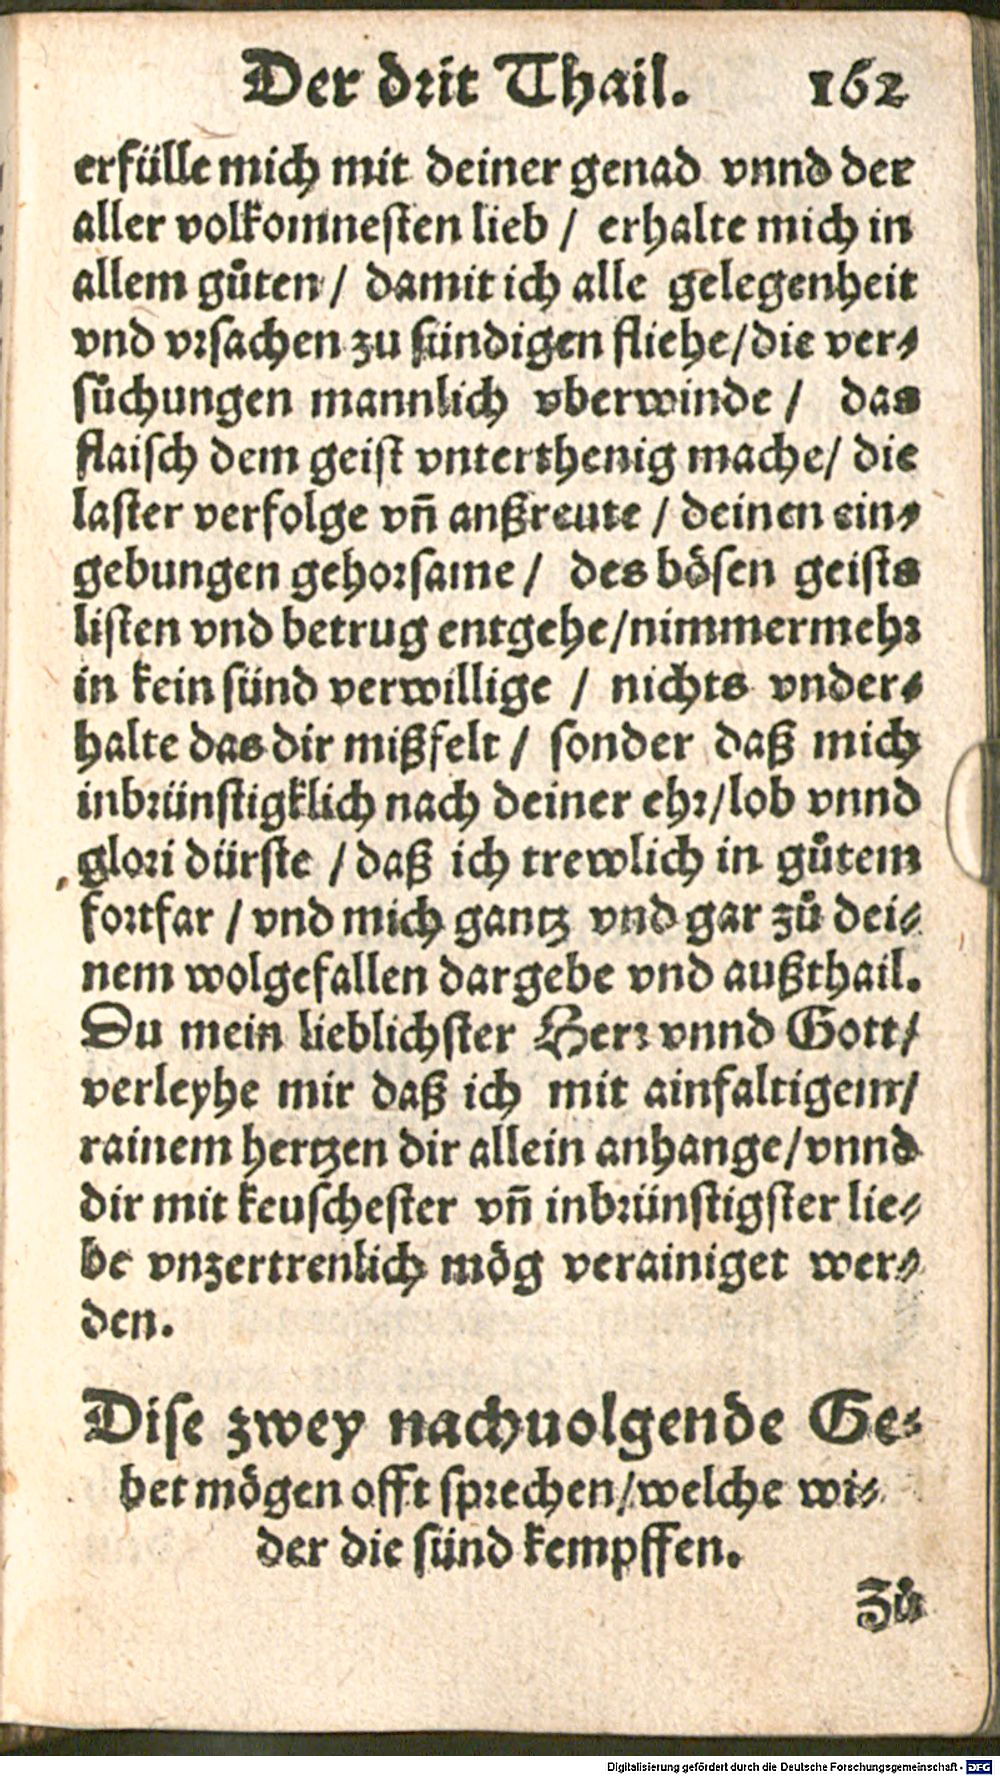 Der drit Thail. 162
erfülle mich mit deiner genad vnnd der
aller volkomnesten lieb / erhalte mich in
allem gůten / damit ich alle gelegenheit
vnd vrsachen zu sündigen fliehe / die ver⸗
sůchungen mannlich vberwinde / das
flaisch dem geist vnterthenig mache / die
laster verfolge vn̄ anßreute / deinen ein⸗
gebungen gehorsame / des bösen geists
listen vnd betrug entgehe / nimmermehr
in kein sünd verwillige / nichts vnder⸗
halte das dir mißfelt / sonder daß mich
inbrünstigklich nach deiner ehr / lob vnnd
glori dürste / daß ich trewlich in gůtem
fortfar / vnd mich gantz vnd gar zů dei⸗
nem wolgefallen dargebe vnd außthail.
Du mein lieblichster Herr vnnd Gott /
verleyhe mir daß ich mit ainfaltigem /
rainem hertzen dir allein anhange / vnnd
dir mit keuschester vn̄ inbrünstigster lie⸗
be vnzertrenlich mög verainiget wer⸗
den.
Dise zwey nachuolgende Ge⸗
bet mögen offt sprechen / welche wi⸗
der die sünd kempffen.
Zů
Digitalisierung gefördert durch die Deutsche Forschungsgemeinschaft - DFG